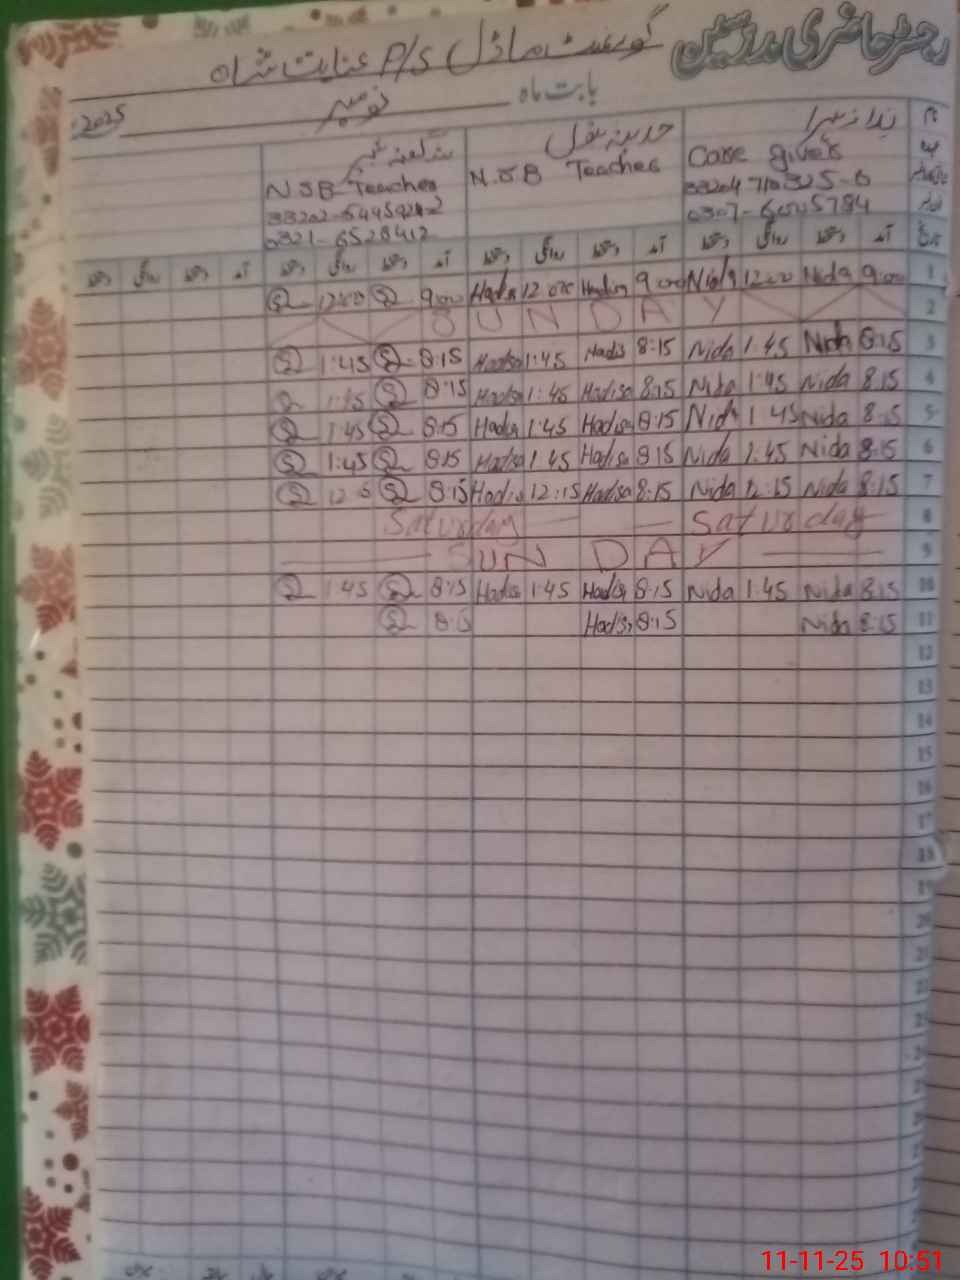 رجسٹر حاضری مدرسین گورنمنٹ ماڈل P/S عنایت شاہ
بابت ماہ نومبر 2025
نام ندا زہرا
Care giver
0307-6005784
N.SB Teacher
N SB Teacher
0321-6528412
تاریخ آمد دستخط روانگی دستخط آمد دستخط روانگی دستخط آمد دستخط روانگی دستخط آمد دستخط روانگی دستخط
12:00 9:00 Hadisa 12:00 Hadisa 9:00 Nida 12:00 Nida 9:00 1
SUNDAY 2
1:45 8:15 Hadisa 1:45 Hadis 8:15 Nida 1:45 Nida 8:15 3
1:45 8:15 Hadisa 1:45 Hadisa 8:15 Nida 1:45 Nida 8:15 4
1:45 8:15 Hadisa 1:45 Hadisa 8:15 Nida 1:45 Nida 8:15 5
1:45 8:15 Hadisa 1:45 Hadisa 8:15 Nida 1:45 Nida 8:15 6
8:15 Hadisa 12:15 Hadisa 8:15 Nida 12:15 Nida 8:15 7
Saturday Saturday 8
SUNDAY 9
1:45 8:15 Hadisa 1:45 Hadisa 8:15 Nida 1:45 Nida 8:15 10
8:15 Hadisa 8:15 Nida 8:15 11
12
13
14
15
16
17
18
19
20
21
22
23
24
11-11-25 10:51